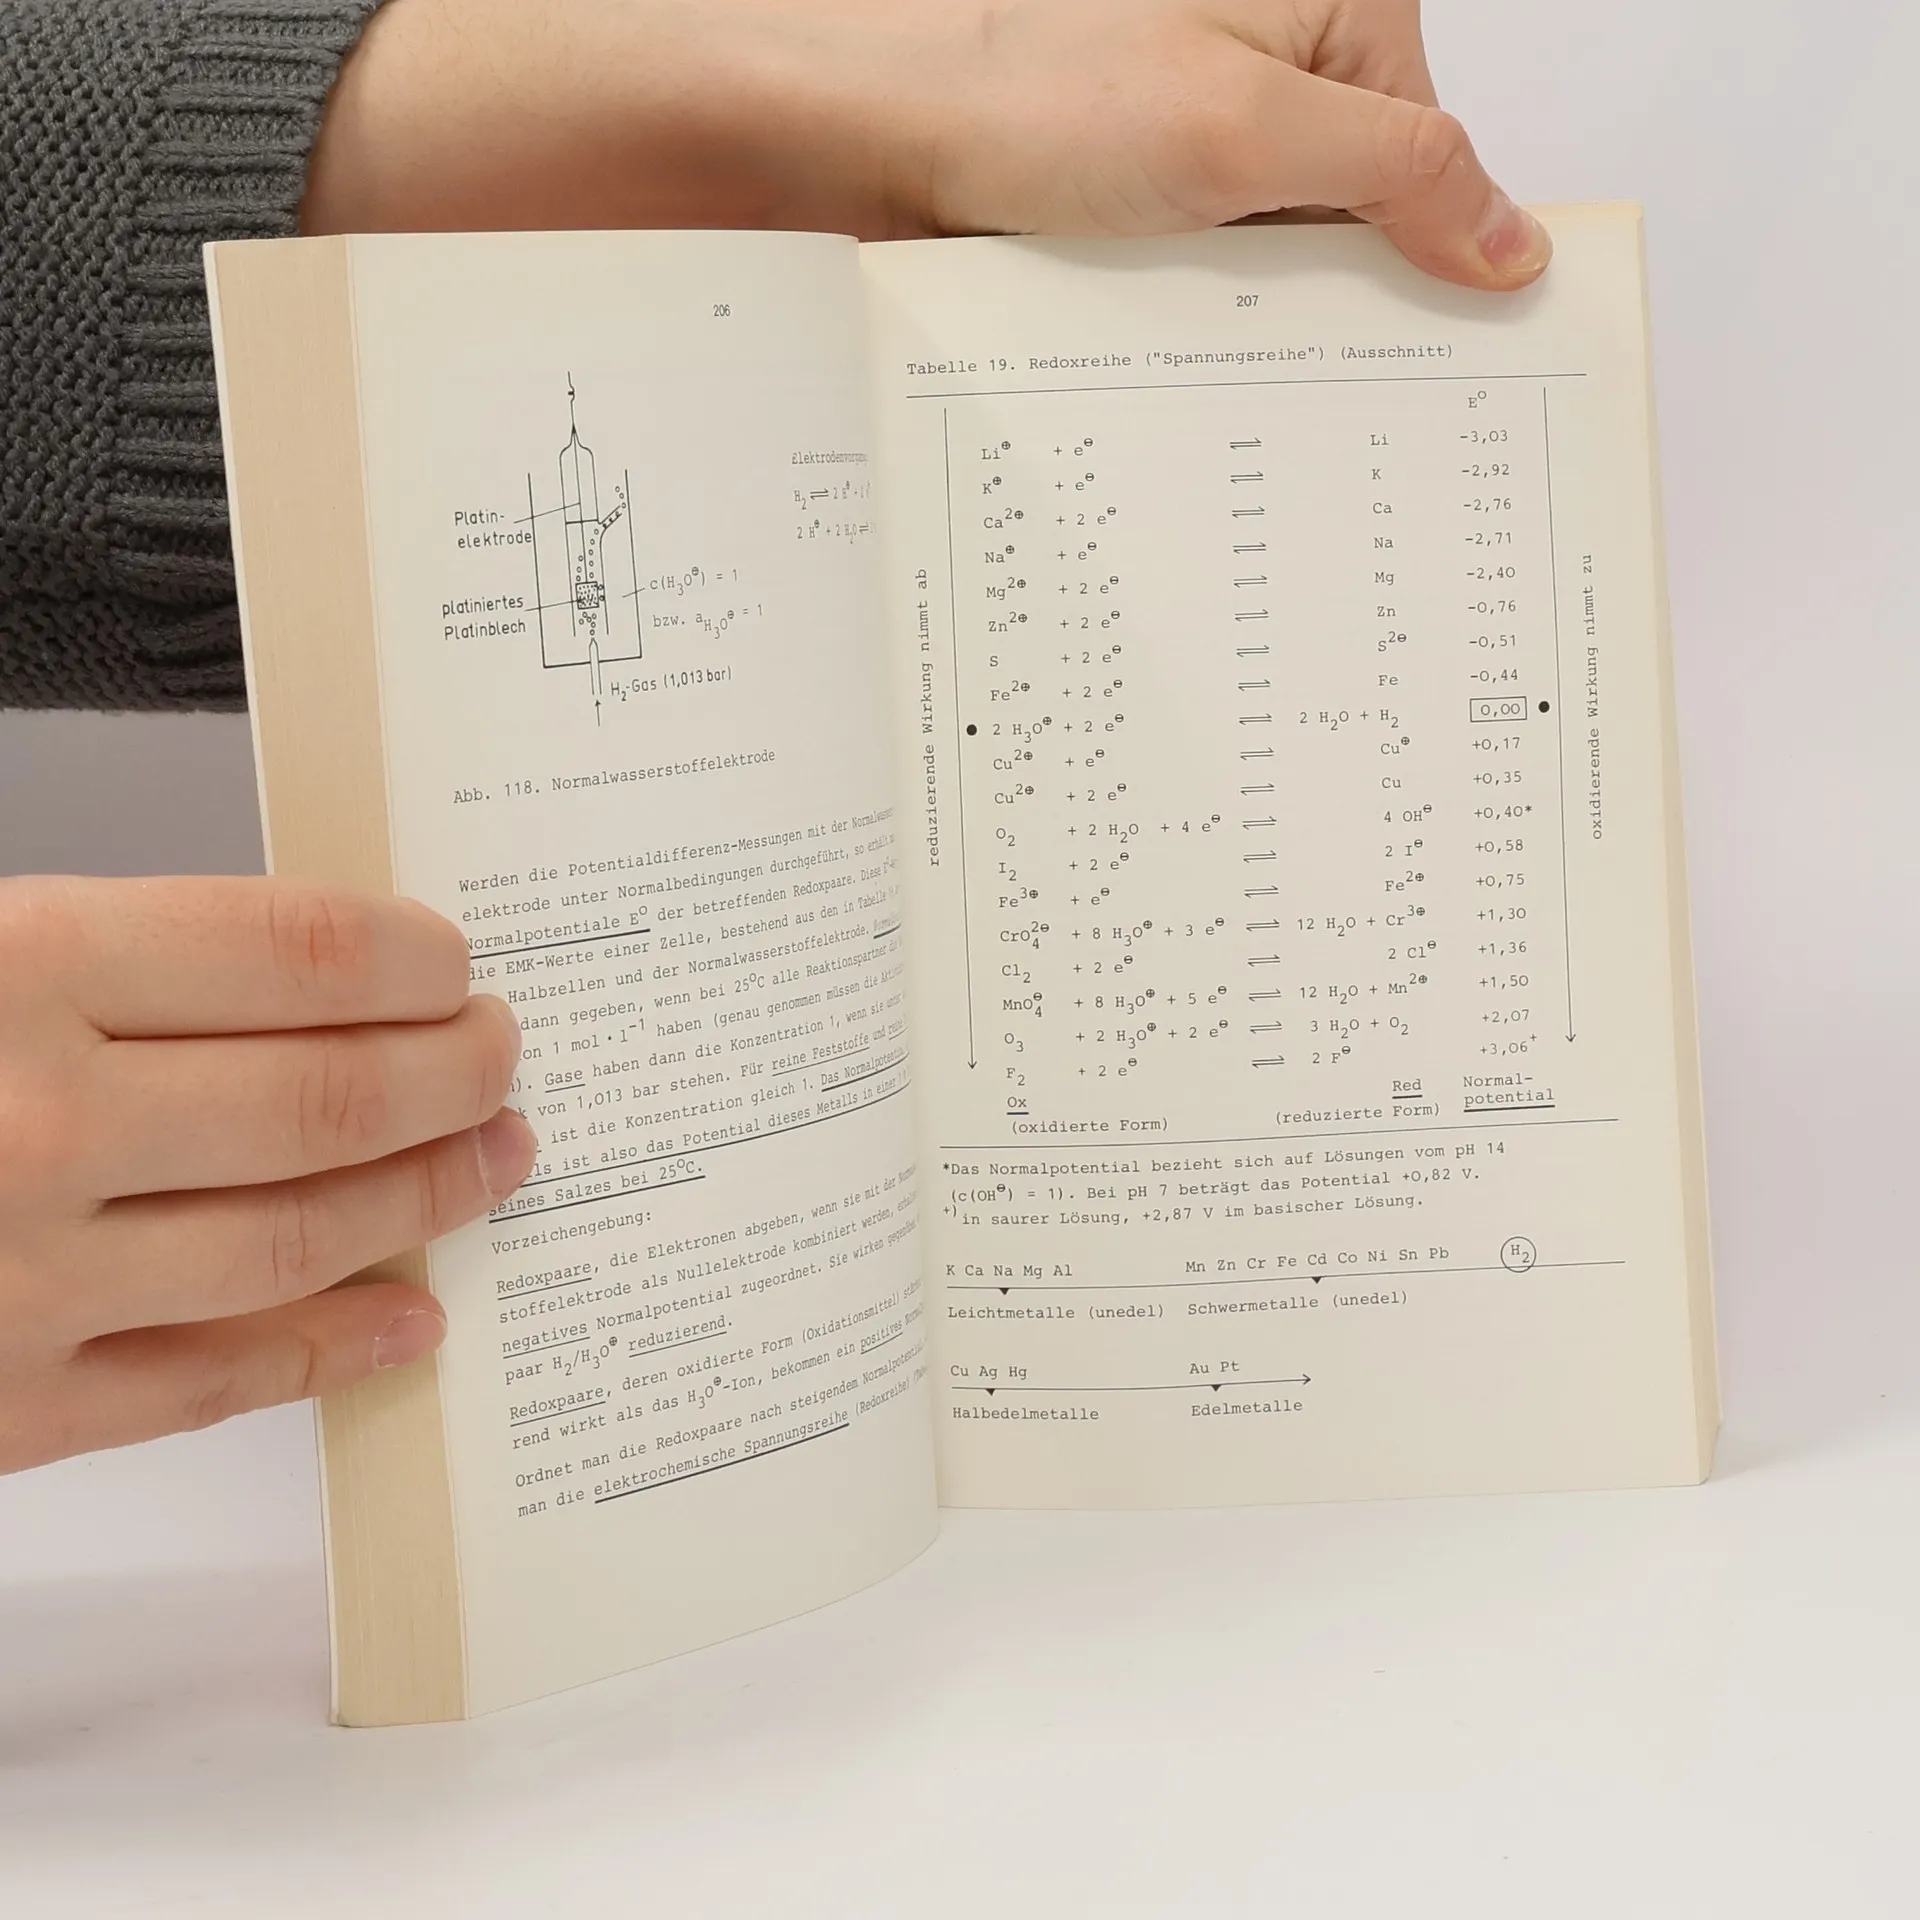 206
Platin-
elektrode
platiniertes
Platinblech
H₂ ⇌ 2 H⊕
2 H⊕ + 2 H₂O ⇌
c(H₃O⊕) = 1
bzw. aH₃O⊕ = 1
H₂-Gas (1,013 bar)
Abb. 118. Normalwasserstoffelektrode
Werden die Potentialdifferenz-Messungen mit der
elektrode unter Normalbedingungen durchgeführt, so erhält
Normalpotentiale E⁰ der betreffenden Redoxpaare. Diese
die EMK-Werte einer Zelle, bestehend aus den in Tabelle
Halbzellen und der Normalwasserstoffelektrode.
dann gegeben, wenn bei 25⁰C alle Reaktionspartner die
1 mol·l⁻¹ haben (genau genommen müssen die
Gase haben dann die Konzentration 1, wenn sie unter
von 1,013 bar stehen. Für reine Feststoffe und
ist die Konzentration gleich 1. Das
ist also das Potential dieses Metalls in einer
seines Salzes bei 25⁰C.
Vorzeichengebung:
Redoxpaare, die Elektronen abgeben, wenn sie mit der
stoffelektrode als Nullelektrode kombiniert werden,
negatives Normalpotential zugeordnet. Sie wirken gegenüber
paar H₂/H₃O⊕ reduzierend.
Redoxpaare, deren oxidierte Form (Oxidationsmittel)
rend wirkt als das H₃O⊕-Ion, bekommen ein positives
Ordnet man die Redoxpaare nach steigendem Normalpotential
man die elektrochemische Spannungsreihe (Redoxreihe)
207
Tabelle 19. Redoxreihe ("Spannungsreihe") (Ausschnitt)
E⁰
Li⊕ + e⊖ ⇌ Li -3,03
K⊕ + e⊖ ⇌ K -2,92
Ca²⊕ + 2 e⊖ ⇌ Ca -2,76
Na⊕ + e⊖ ⇌ Na -2,71
Mg²⊕ + 2 e⊖ ⇌ Mg -2,40
Zn²⊕ + 2 e⊖ ⇌ Zn -0,76
S + 2 e⊖ ⇌ S²⊖ -0,51
Fe²⊕ + 2 e⊖ ⇌ Fe -0,44
● 2 H₃O⊕ + 2 e⊖ ⇌ 2 H₂O + H₂ 0,00 ●
Cu²⊕ + e⊖ ⇌ Cu⊕ +0,17
Cu²⊕ + 2 e⊖ ⇌ Cu +0,35
O₂ + 2 H₂O + 4 e⊖ ⇌ 4 OH⊖ +0,40*
I₂ + 2 e⊖ ⇌ 2 I⊖ +0,58
Fe³⊕ + e⊖ ⇌ Fe²⊕ +0,75
CrO₄²⊖ + 8 H₃O⊕ + 3 e⊖ ⇌ 12 H₂O + Cr³⊕ +1,30
Cl₂ + 2 e⊖ ⇌ 2 Cl⊖ +1,36
MnO₄⊖ + 8 H₃O⊕ + 5 e⊖ ⇌ 12 H₂O + Mn²⊕ +1,50
O₃ + 2 H₃O⊕ + 2 e⊖ ⇌ 3 H₂O + O₂ +2,07
F₂ + 2 e⊖ ⇌ 2 F⊖ +3,06⁺
Ox Red Normal-
(oxidierte Form) (reduzierte Form) potential
reduzierende Wirkung nimmt ab
oxidierende Wirkung nimmt zu
*Das Normalpotential bezieht sich auf Lösungen vom pH 14
(c(OH⊖) = 1). Bei pH 7 beträgt das Potential +0,82 V.
+) in saurer Lösung, +2,87 V im basischer Lösung.
K Ca Na Mg Al Mn Zn Cr Fe Cd Co Ni Sn Pb H₂
Leichtmetalle (unedel) Schwermetalle (unedel)
Cu Ag Hg Au Pt
Halbedelmetalle Edelmetalle